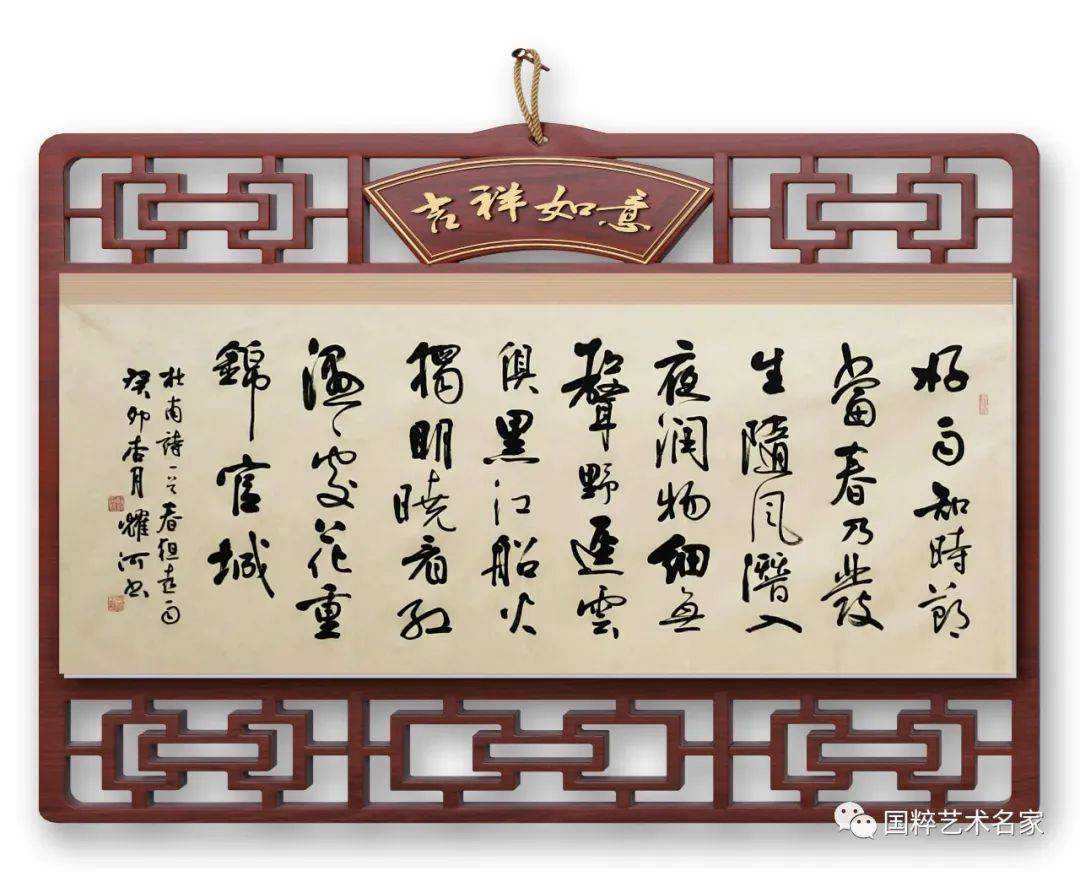 吉祥如意
好雨知時節
當春乃發
生隨風潛入
夜潤物細無
聲野逕雲
俱黑江船火
獨明曉看紅
濕處花重
錦官城
杜甫詩一首春夜喜雨
癸卯杏月耀河書
国粹艺术名家